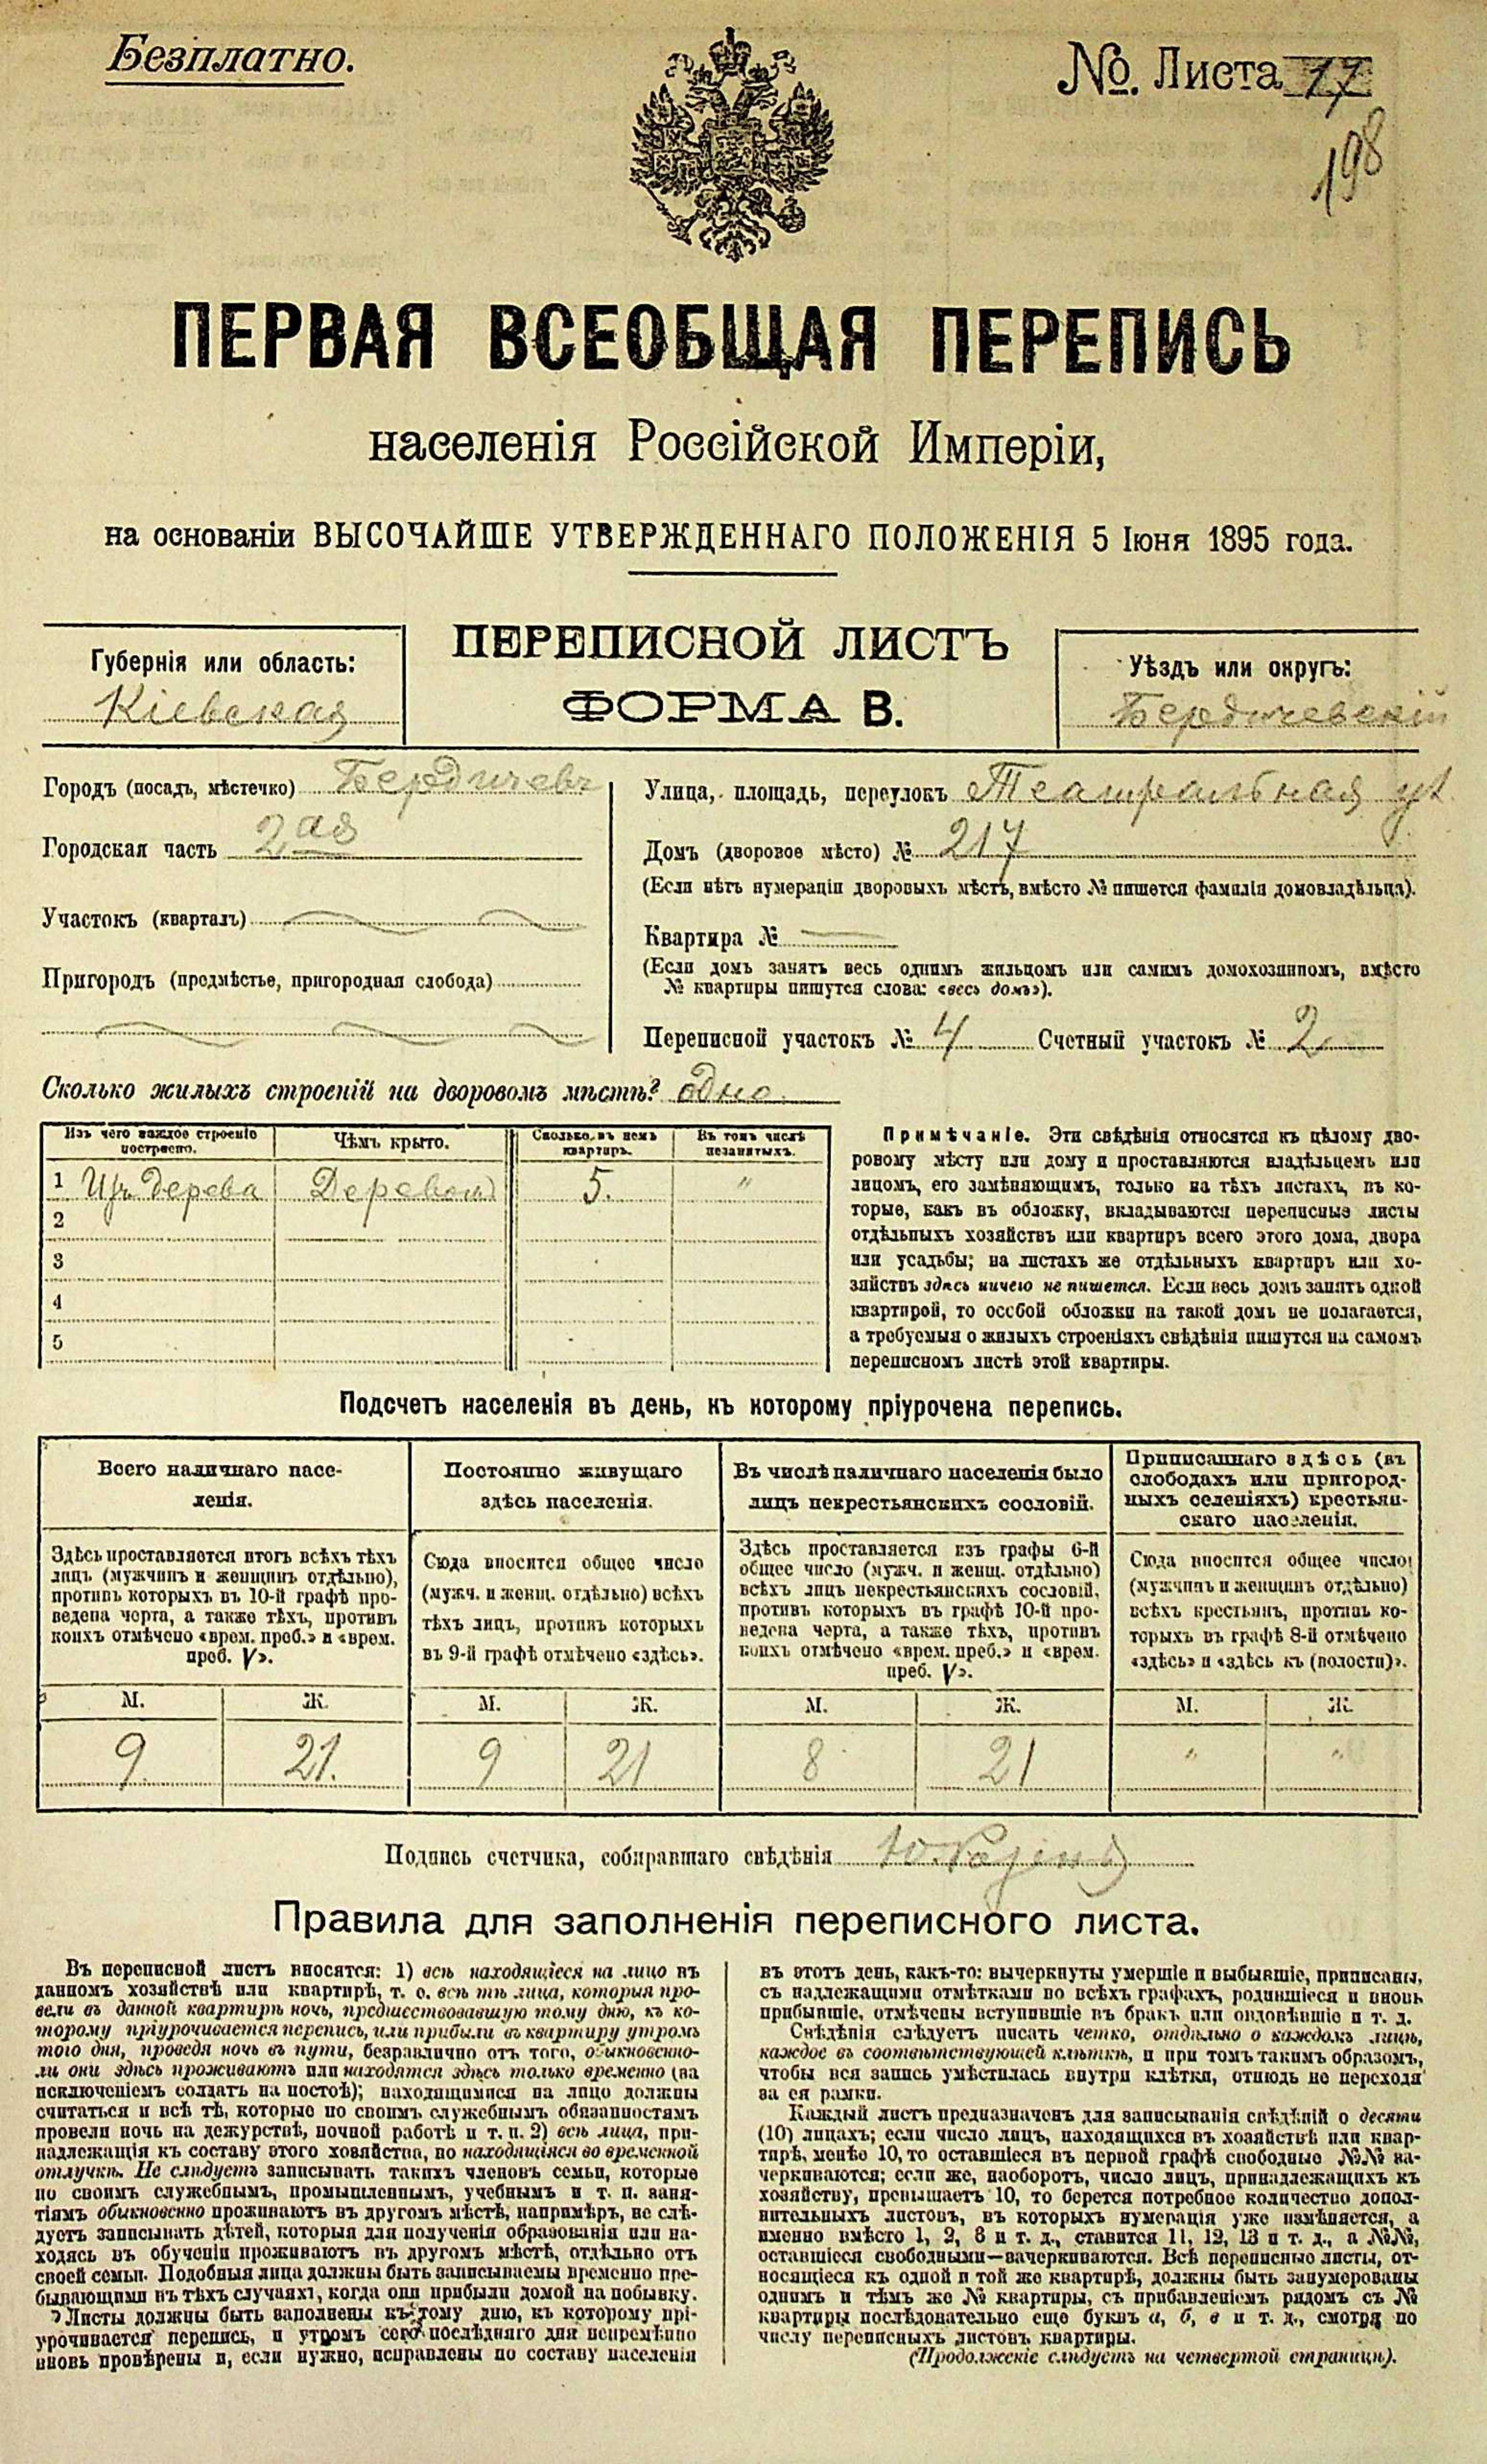 Безплатно.
№. Листа 17
198
ПЕРВАЯ ВСЕОБЩАЯ ПЕРЕПИСЬ
населенія Россійской Имперіи,
на основаніи ВЫСОЧАЙШЕ УТВЕРЖДЕННАГО ПОЛОЖЕНІЯ 5 Іюня 1895 года.
ПЕРЕПИСНОЙ ЛИСТЪ
ФОРМА В.
Губернія или область:
Кіевская
Уѣздъ или округъ:
Бердичевскій
Городъ (посадъ, мѣстечко) Бердичевъ
Городская часть 2ая
Участокъ (кварталъ)
Пригородъ (предмѣстье, пригородная слобода)
Улица, площадь, переулокъ Театральная ул
Домъ (дворовое мѣсто) № 217
(Если нѣтъ нумераціи дворовыхъ мѣстъ, вмѣсто № пишется фамилія домовладѣльца).
Квартира № —
(Если домъ занятъ весь однимъ жильцомъ или самимъ домохозяиномъ, вмѣсто
№ квартиры пишутся слова: «весь домъ»).
Переписной участокъ № 4 Счетный участокъ № 2
Сколько жилыхъ строеній на дворовомъ мѣстѣ? одно
Изъ чего каждое строеніе построено.
Чѣмъ крыто.
Сколько въ немъ квартиръ.
Въ томъ числѣ незанятыхъ.
1 Изъ дерева Деревом 5. "
2
3
4
5
Примѣчаніе. Эти свѣдѣнія относятся къ цѣлому дво-
ровому мѣсту или дому и проставляются владѣльцемъ или
лицомъ, его замѣняющимъ, только на тѣхъ листахъ, въ ко-
торые, какъ въ обложку, вкладываются переписные листы
отдѣльныхъ хозяйствъ или квартиръ всего этого дома, двора
или усадьбы; на листахъ же отдѣльныхъ квартиръ или хо-
зяйствъ здѣсь ничего не пишется. Если весь домъ занятъ одной
квартирой, то особой обложки на такой домъ не полагается,
а требуемыя о жилыхъ строеніяхъ свѣдѣнія пишутся на самомъ
переписномъ листѣ этой квартиры.
Подсчетъ населенія въ день, къ которому пріурочена перепись.
Всего наличнаго насе-
ленія.
Здѣсь проставляется итогъ всѣхъ тѣхъ
лицъ (мужчинъ и женщинъ отдѣльно),
противъ которыхъ въ 10-й графѣ про-
ведена черта, а также тѣхъ, противъ
коихъ отмѣчено «врем. преб.» и «врем.
преб. V».
М. Ж.
9. 21.
Постоянно живущаго
здѣсь населенія.
Сюда вносится общее число
(мужч. и женщ. отдѣльно) всѣхъ
тѣхъ лицъ, противъ которыхъ
въ 9-й графѣ отмѣчено «здѣсь».
М. Ж.
9 21
Въ числѣ наличнаго населенія было
лицъ некрестьянскихъ сословій.
Здѣсь проставляется изъ графы 6-й
общее число (мужч. и женщ. отдѣльно)
всѣхъ лицъ некрестьянскихъ сословій,
противъ которыхъ въ графѣ 10-й про-
ведена черта, а также тѣхъ, противъ
коихъ отмѣчено «врем. преб.» и «врем.
преб. V».
М. Ж.
8 21
Приписаннаго здѣсь (въ
слободахъ или пригород-
ныхъ селеніяхъ) крестьян-
скаго населенія.
Сюда вносится общее число
(мужчинъ и женщинъ отдѣльно)
всѣхъ крестьянъ, противъ ко-
торыхъ въ графѣ 8-й отмѣчено
«здѣсь» и «здѣсь къ (волости)».
М. Ж.
" "
Подпись счетчика, собиравшаго свѣдѣнія
Правила для заполненія переписного листа.
Въ переписной листъ вносятся: 1) всѣ находящіеся на лицо въ
данномъ хозяйствѣ или квартирѣ, т. е. всѣ тѣ лица, которыя про-
вели въ данной квартирѣ ночь, предшествовавшую тому дню, къ ко-
торому пріурочивается перепись, или прибыли въ квартиру утромъ
того дня, проведя ночь въ пути, безразлично отъ того, обыкновенно-
ли они здѣсь проживаютъ или находятся здѣсь только временно (за
исключеніемъ солдатъ на постоѣ); находящимися на лицо должны
считаться и всѣ тѣ, которые по своимъ служебнымъ обязанностямъ
провели ночь на дежурствѣ, ночной работѣ и т. п. 2) всѣ лица, при-
надлежащія къ составу этого хозяйства, но находящіяся во временной
отлучкѣ. Не слѣдуетъ записывать такихъ членовъ семьи, которые
по своимъ служебнымъ, промышленнымъ, учебнымъ и т. п. заня-
тіямъ обыкновенно проживаютъ въ другомъ мѣстѣ, напримѣръ, не слѣ-
дуетъ записывать дѣтей, которыя для полученія образованія или на-
ходясь въ обученіи проживаютъ въ другомъ мѣстѣ, отдѣльно отъ
своей семьи. Подобныя лица должны быть записываемы временно пре-
бывающими въ тѣхъ случаяхъ, когда они прибыли домой на побывку.
Листы должны быть заполнены къ тому дню, къ которому прі-
урочивается перепись, и утромъ сего послѣдняго дня непремѣнно
вновь провѣрены и, если нужно, исправлены по составу населенія
въ этотъ день, какъ-то: вычеркнуты умершіе и выбывшіе, приписаны,
съ надлежащими отмѣтками во всѣхъ графахъ, родившіеся и вновь
прибывшіе, отмѣчены вступившіе въ бракъ или овдовѣвшіе и т. д.
Свѣдѣнія слѣдуетъ писать четко, отдѣльно о каждомъ лицѣ,
каждое въ соотвѣтствующей клѣткѣ, и при томъ такимъ образомъ,
чтобы вся запись умѣстилась внутри клѣтки, отнюдь не переходя
за ея рамки.
Каждый листъ предназначенъ для записыванія свѣдѣній о десяти
(10) лицахъ; если число лицъ, находящихся въ хозяйствѣ или квар-
тирѣ, менѣе 10, то оставшіеся въ первой графѣ свободные №№ за-
черкиваются; если же, наоборотъ, число лицъ, принадлежащихъ къ
хозяйству, превышаетъ 10, то берется потребное количество допол-
нительныхъ листовъ, въ которыхъ нумерація уже измѣняется, а
именно вмѣсто 1, 2, 3 и т. д., ставится 11, 12, 13 и т. д., а №№,
оставшіеся свободными—зачеркиваются. Всѣ переписные листы, от-
носящіеся къ одной и той же квартирѣ, должны быть занумерованы
однимъ и тѣмъ же № квартиры, съ прибавленіемъ рядомъ съ №
квартиры послѣдовательно еще буквъ а, б, в и т. д., смотря по
числу переписныхъ листовъ квартиры.
(Продолженіе слѣдуетъ на четвертой страницѣ).